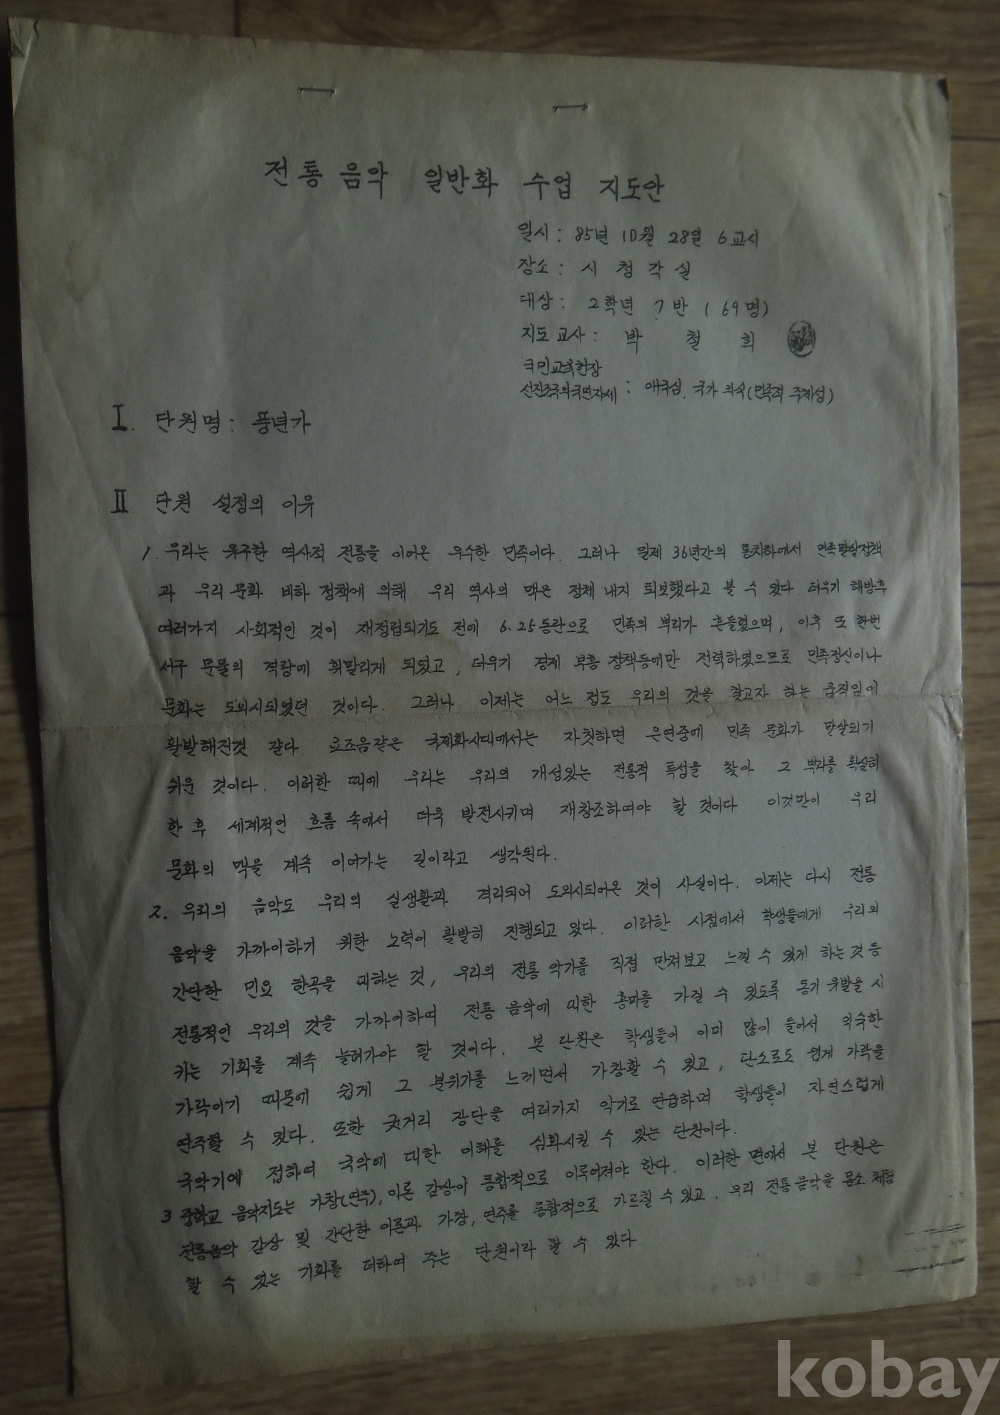 전통 음악 일반화 수업 지도안
일시 : 85년 10월 28일 6교시
장소 : 시 청 각 실
대상 : 2학년 7반 ( 69명)
지도 교사 : 박 철 희
국민교육헌장
선진조국의국민자세 : 애국심, 국가 의식(민족적 주체성)
I. 단원명 : 풍년가
II 단원 설정의 이유
1. 우리는 유구한 역사적 전통을 이어온 우수한 민족이다. 그러나 일제 36년간의 통치하에서 민족말살정책
과 우리 문화 비하 정책에 의해 우리 역사의 맥은 정체 내지 퇴보했다고 볼 수 있다 더우기 해방후
여러가지 사회적인 것이 재정립되기도 전에 6.25동란으로 민족의 뿌리가 흔들렸으며, 이후 또 한번
서구 문물의 격랑에 휘말리게 되었고, 더우기 경제 부흥 정책등에만 전력하였으므로 민족정신이나
문화는 도외시되었던 것이다. 그러나 이제는 어느 정도 우리의 것을 찾고자 하는 움직임이
활발해진것 같다. 요조음같은 국제화시대에서는 자칫하면 은연중에 민족 문화가 말살되기
쉬운 것이다. 이러한 때에 우리는 우리의 개성있는 전통적 특성을 찾아 그 뿌리를 확실히
한 후 세계적인 흐름 속에서 더욱 발전시키며 재창조하여야 할 것이다 이것만이 우리
문화의 맥을 계속 이어가는 길이라고 생각된다.
2. 우리의 음악도 우리의 실생활과 격리되어 도외시되어온 것이 사실이다. 이제는 다시 전통
음악을 가까이하기 위한 노력이 활발히 진행되고 있다. 이러한 시점에서 학생들에게 우리의
간단한 민요 한곡을 대하는 것, 우리의 전통 악기를 직접 만져보고 느낄 수 있게 하는 것 등
전통적인 우리의 것을 가까이하여 전통 음악에 대한 흥미를 가질 수 있도록 동기 유발을 시
키는 기회를 계속 늘려가야 할 것이다. 본 단원은 학생들이 이미 많이 들어서 익숙한
가락이기 때문에 쉽게 그 분위기를 느끼면서 가창할 수 있고, 단소로도 쉽게 가락을
연주할 수 있다. 또한 굿거리 장단을 여러가지 악기로 연습하며 학생들이 자연스럽게
국악기에 접하여 국악에 대한 이해를 심화시킬 수 있는 단원이다.
3 중학교 음악지도는 가창(연주), 이론 감상이 통합적으로 이루어져야 한다. 이러한 면에서 본 단원은
전통음악 감상 및 간단한 이론과 가창, 연주를 통합적으로 가르칠 수 있고. 우리 전통 음악을 몸소 체험
할 수 있는 기회를 더하여 주는 단원이라 할 수 있다.
kobay